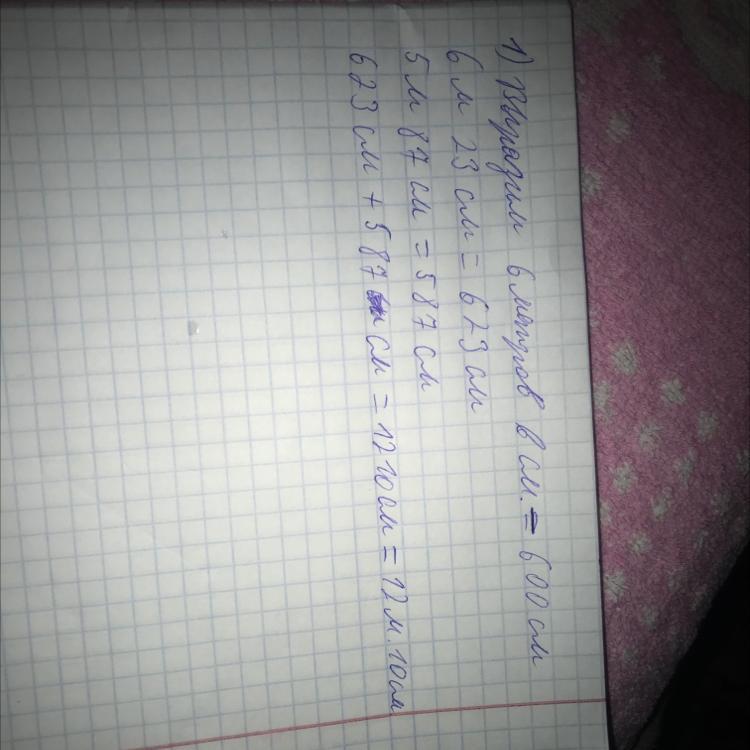 1) Выразим 6 метров в см. = 600 см
6 м 23 см = 623 см
5 м 87 см = 587 см
623 см + 587 см = 1210 см = 12 м. 10 см